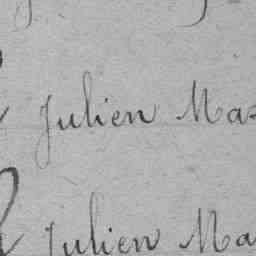 Julien Mas
Julien Ma